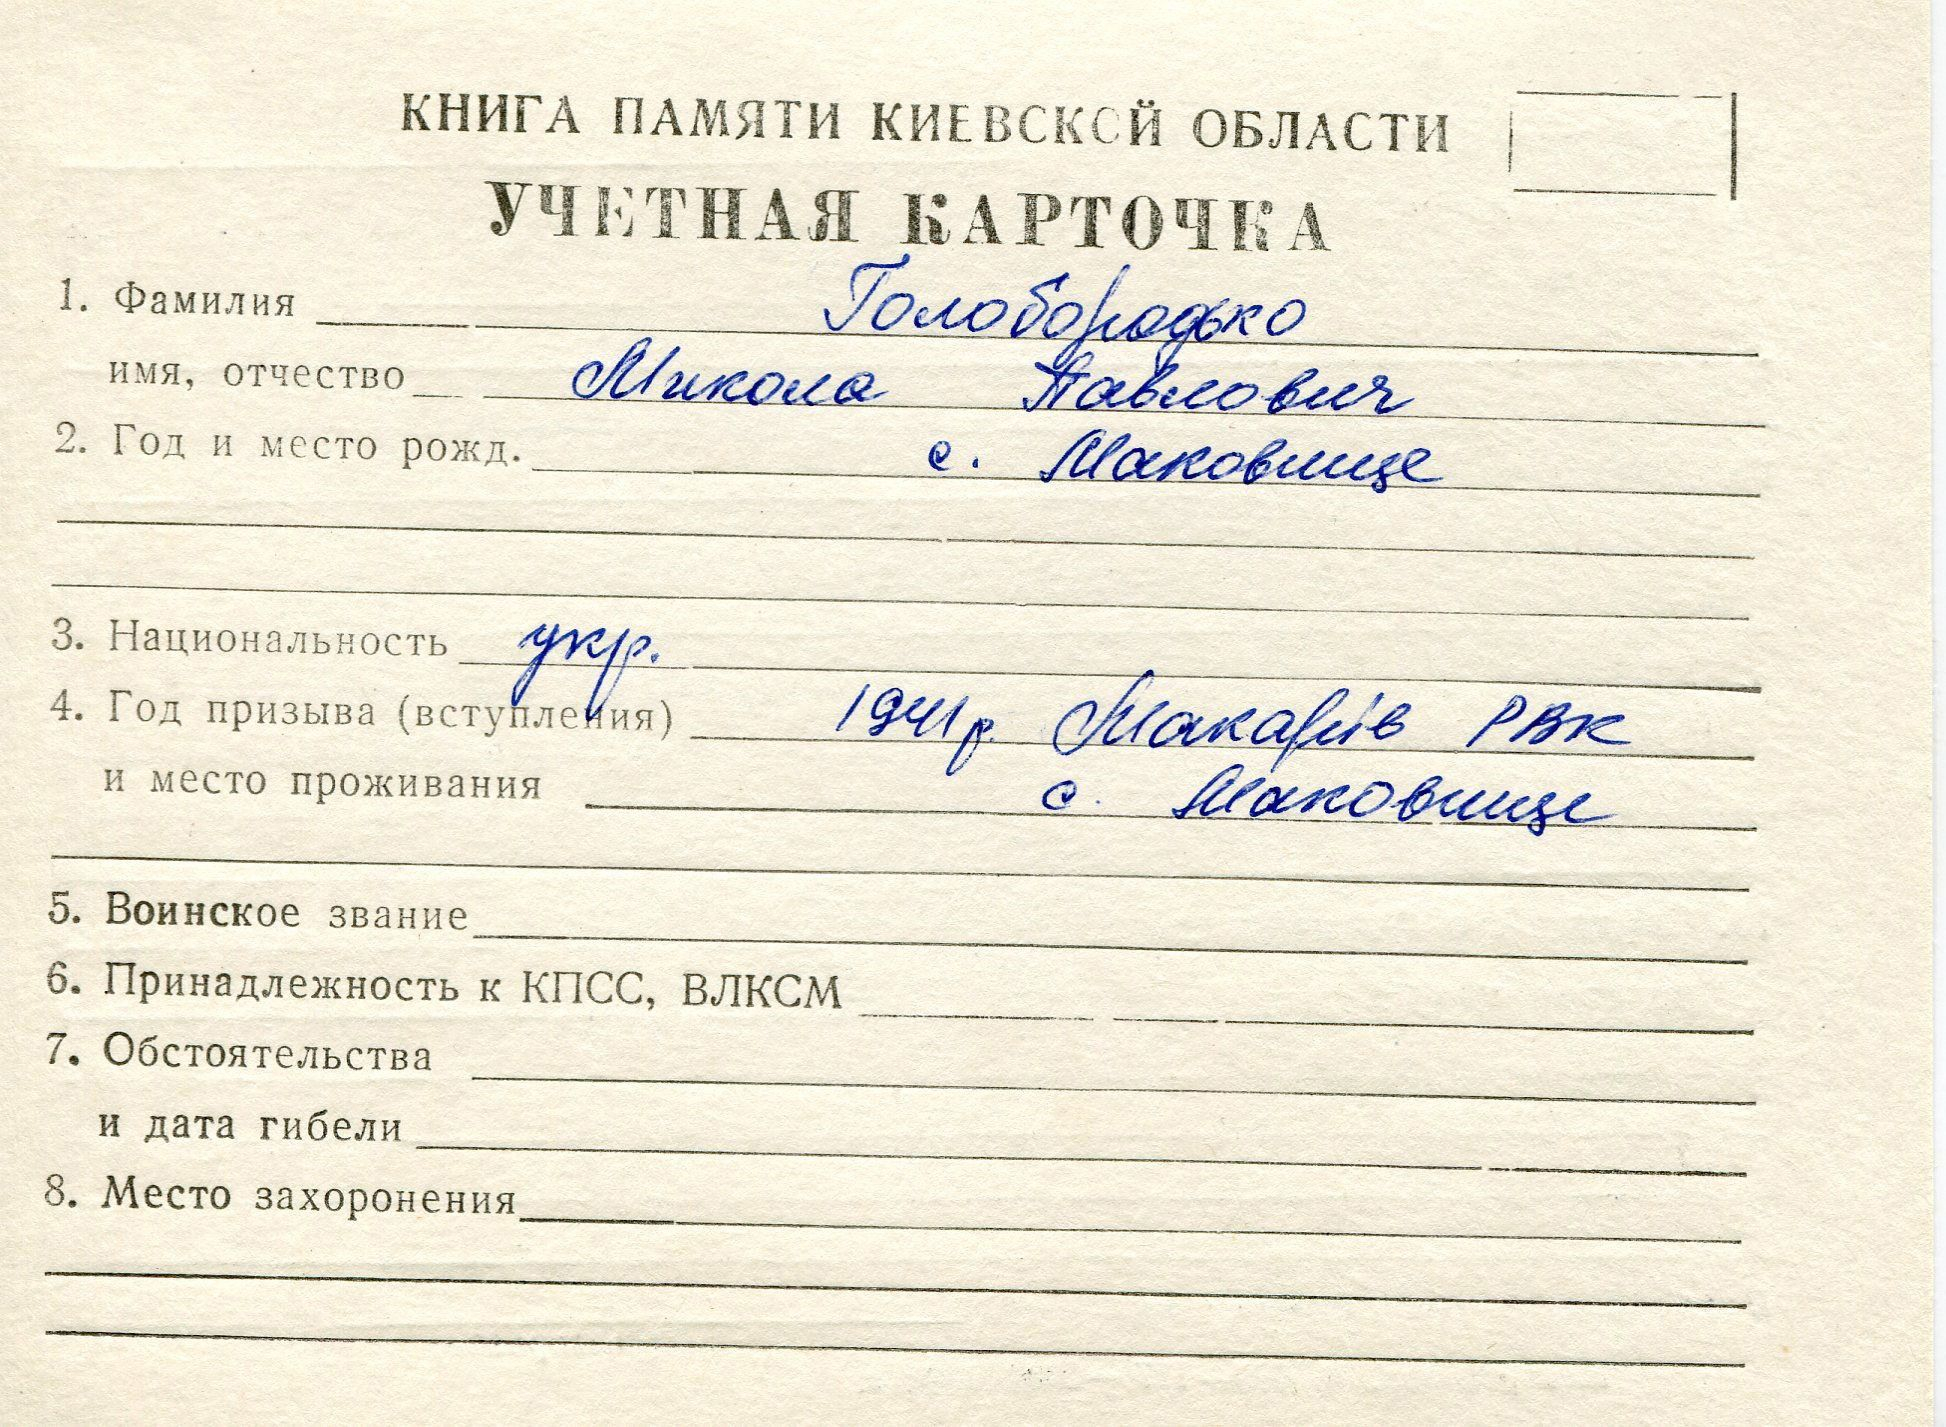 КНИГА ПАМЯТИ КИЕВСКОЙ ОБЛАСТИ
УЧЕТНАЯ КАРТОЧКА
1. Фамилия Голобородько
имя, отчество Микола Павлович
2. Год и место рожд. с. Маковище
3. Национальность укр.
4. Год призыва (вступления) 1941р. Макарів РВК
и место проживания с. Маковище
5. Воинское звание
6. Принадлежность к КПСС, ВЛКСМ
7. Обстоятельства
и дата гибели
8. Место захоронения